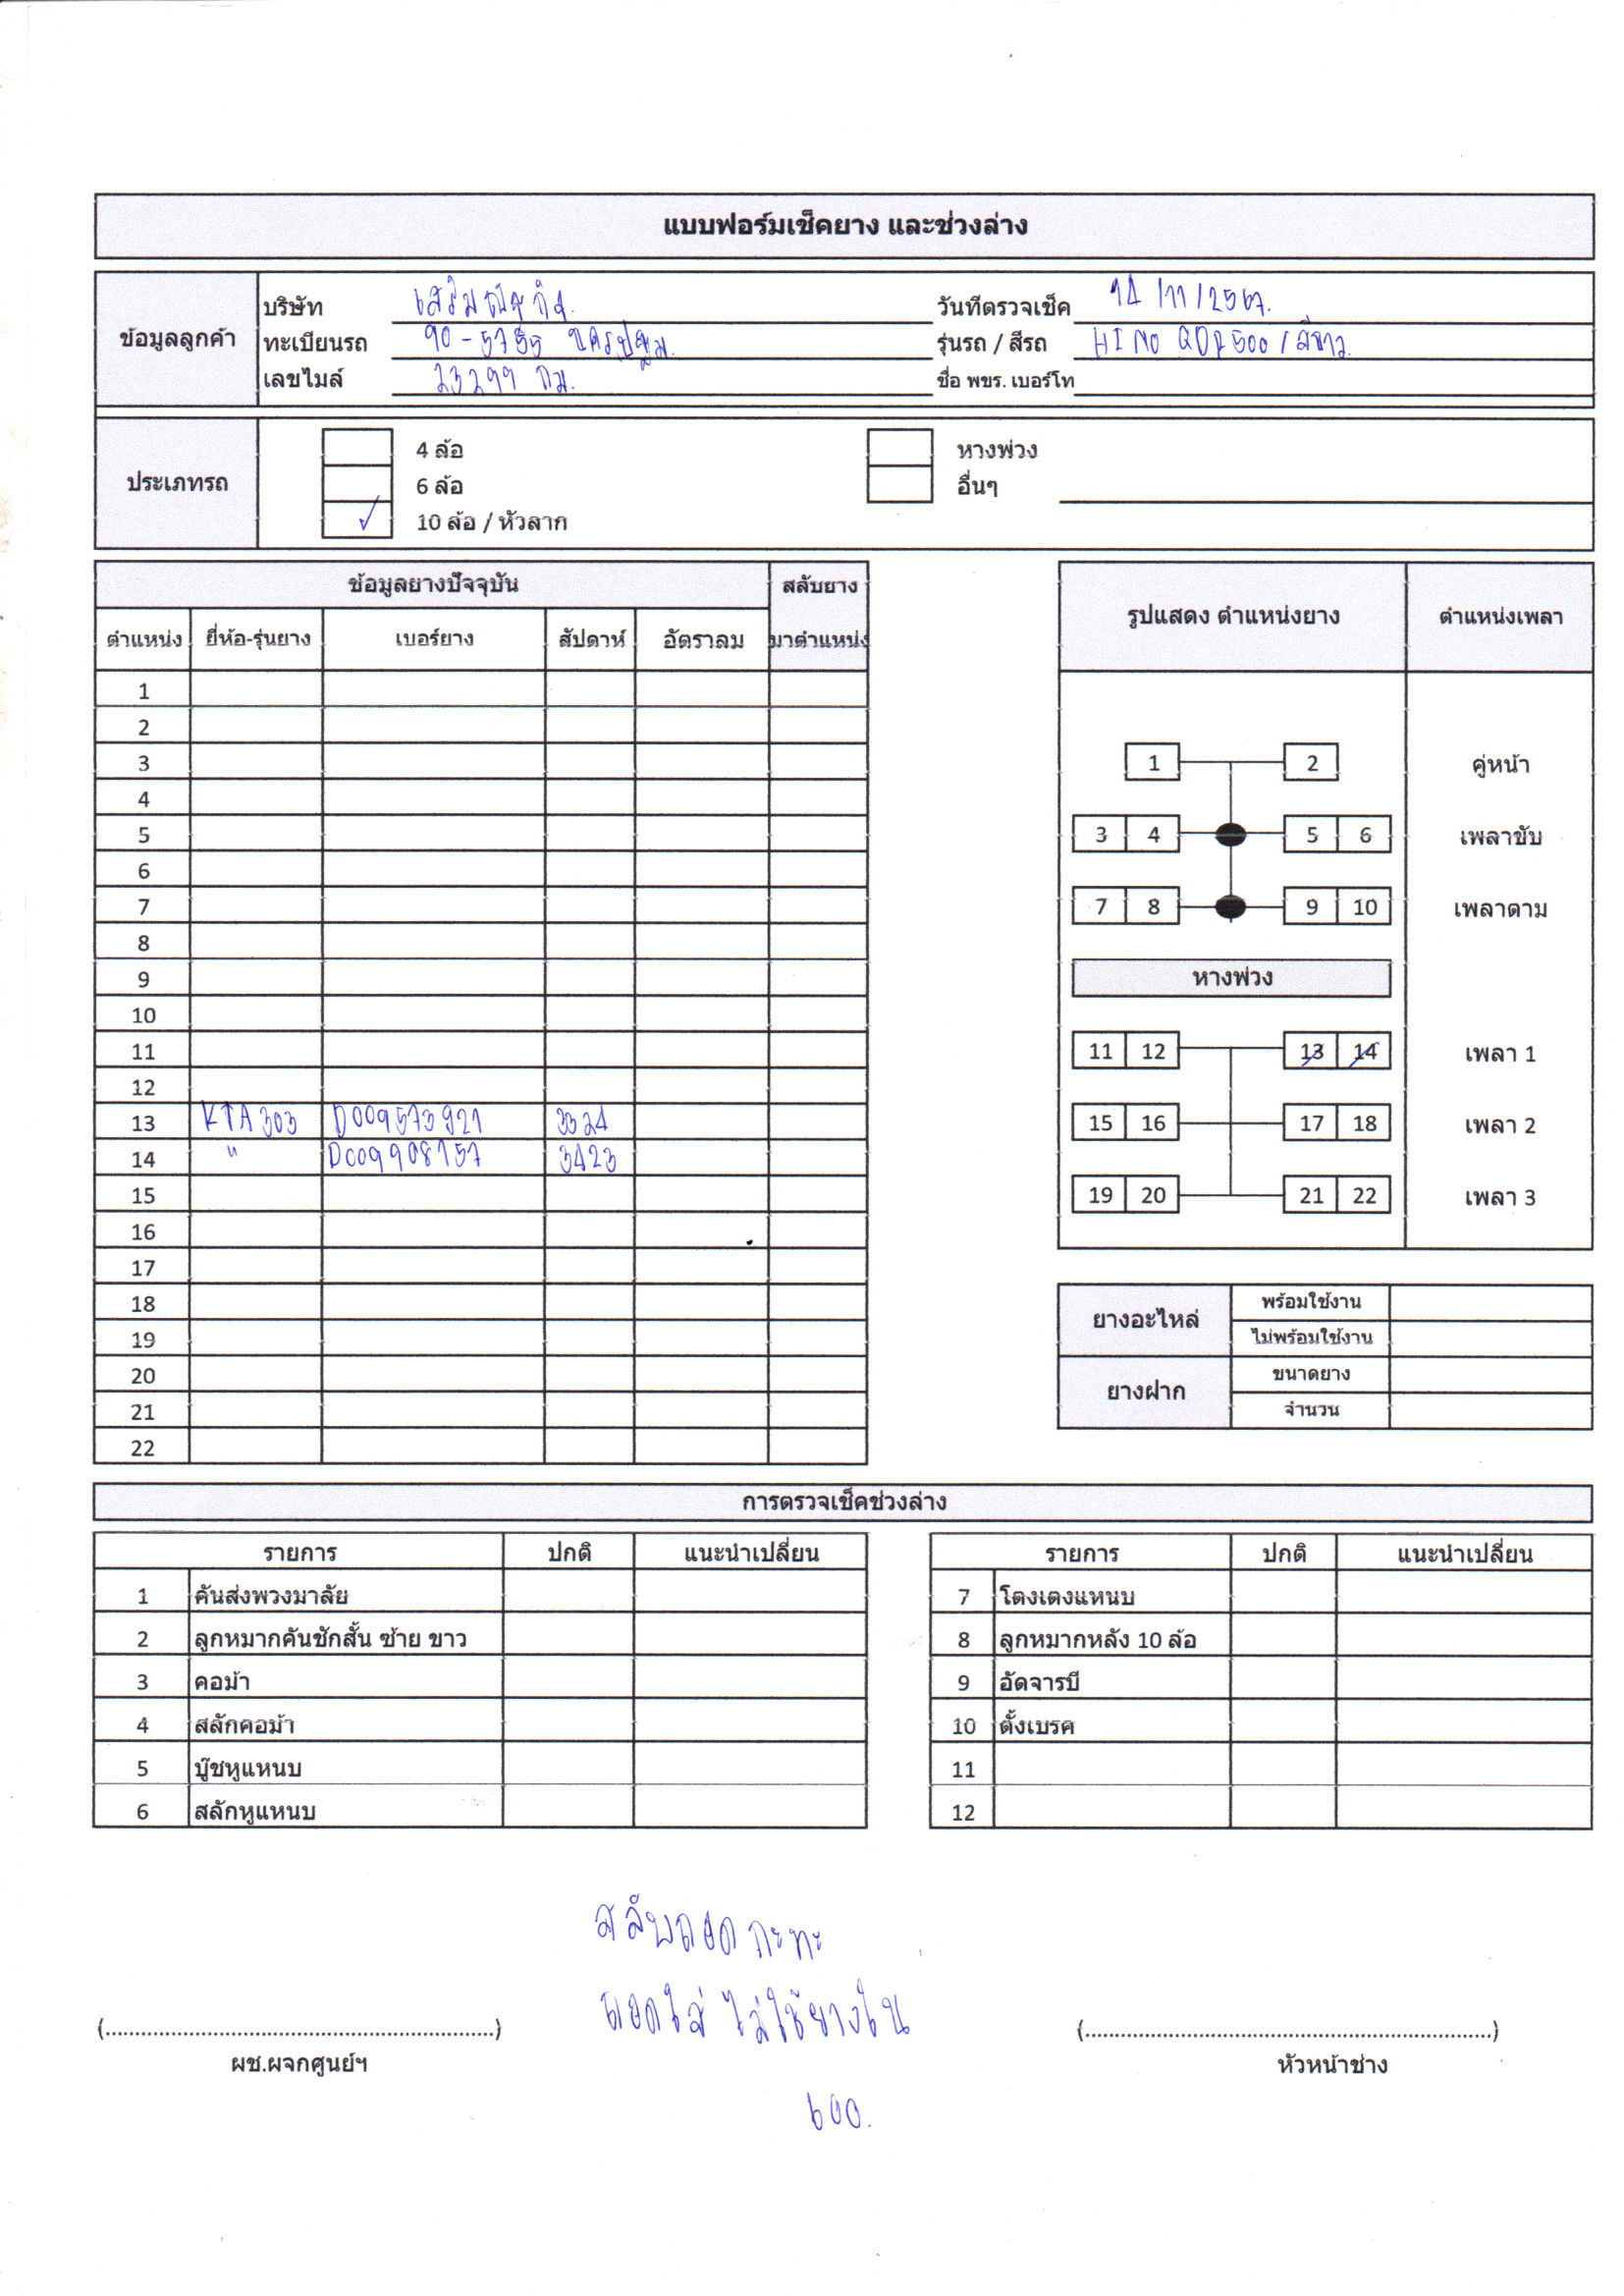 แบบฟอร์มเช็คยาง และช่วงล่าง
ข้อมูลลูกค้า
บริษัท
วันที่ตรวจเช็ค 14/11/2567.
ทะเบียนรถ 90-5755 นครปฐม.
รุ่นรถ / สีรถ HINO 500 / สีขาว
เลขไมล์ 23299 กม.
ชื่อ พขร. เบอร์โท
ประเภทรถ
4 ล้อ
หางพ่วง
6 ล้อ
อื่นๆ
✓ 10 ล้อ / หัวลาก
ข้อมูลยางปัจจุบัน สลับยาง
ตำแหน่ง ยี่ห้อ-รุ่นยาง เบอร์ยาง สัปดาห์ อัตราลม มาตำแหน่ง
1
2
3
4
5
6
7
8
9
10
11
12
13 KTA303 D009573921 3324
14 " D009908757 3423
15
16
17
18
19
20
21
22
รูปแสดง ตำแหน่งยาง ตำแหน่งเพลา
1 2 คู่หน้า
3 4 5 6 เพลาขับ
7 8 9 10 เพลาตาม
หางพ่วง
11 12 13 14 เพลา 1
15 16 17 18 เพลา 2
19 20 21 22 เพลา 3
ยางอะไหล่ พร้อมใช้งาน
ไม่พร้อมใช้งาน
ยางฝาก ขนาดยาง
จำนวน
การตรวจเช็คช่วงล่าง
รายการ ปกติ แนะนำเปลี่ยน
1 คันส่งพวงมาลัย
2 ลูกหมากคันชักสั้น ซ้าย ขาว
3 คอม้า
4 สลักคอม้า
5 บู๊ชหูแหนบ
6 สลักหูแหนบ
รายการ ปกติ แนะนำเปลี่ยน
7 โตงเตงแหนบ
8 ลูกหมากหลัง 10 ล้อ
9 อัดจารบี
10 ตั้งเบรค
11
12
สลับถอด กะทะ
ถอดใส่ ไม่ใช้ยางใน
600.
(....................) ผช.ผจกศูนย์ฯ
(....................) หัวหน้าช่าง